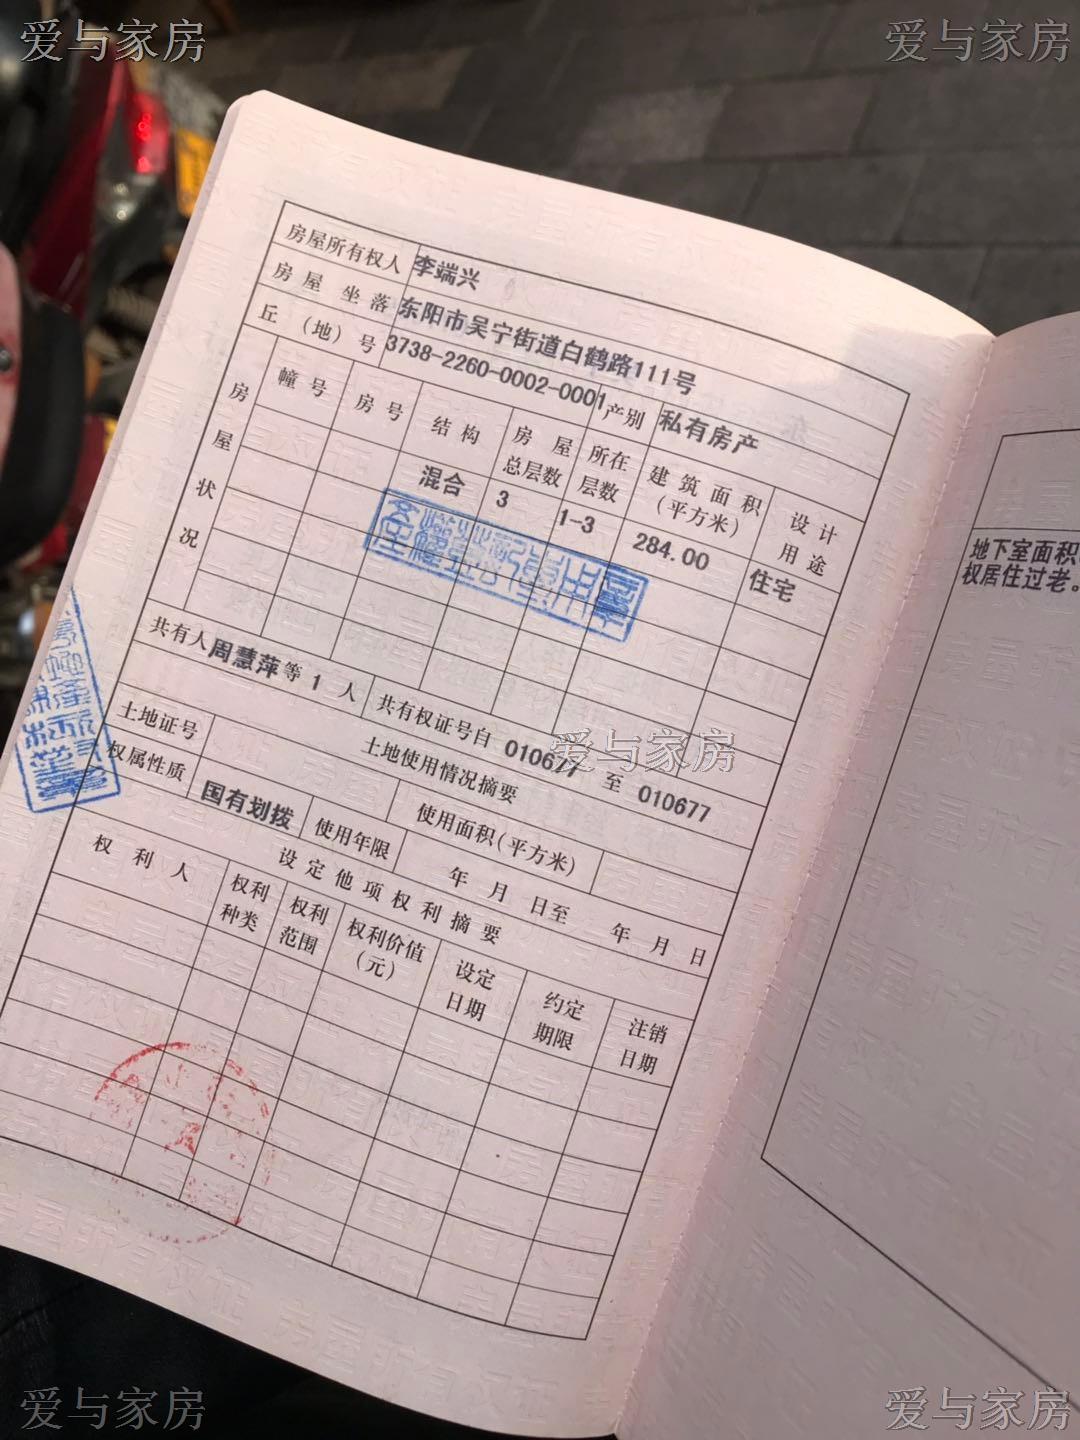 爱与家房
爱与家房
房屋所有权人 李端兴
房屋坐落 东阳市吴宁街道白鹤路111号
丘(地)号 3738-2260-0002-0001 产别 私有房产
房屋状况 幢号 房号 结构 房屋总层数 所在层数 建筑面积(平方米) 设计用途
混合 3 1-3 284.00 住宅
共有人 周慧萍等 1 人 共有权证号自 010677 至 010677
土地使用情况摘要
土地证号 使用面积(平方米)
权属性质 国有划拨 使用年限 年 月 日至 年 月 日
设定他项权利摘要
权利人 权利种类 权利范围 权利价值(元) 设定日期 约定期限 注销日期
地下室面积
权居住过老。
爱与家房
爱与家房
爱与家房